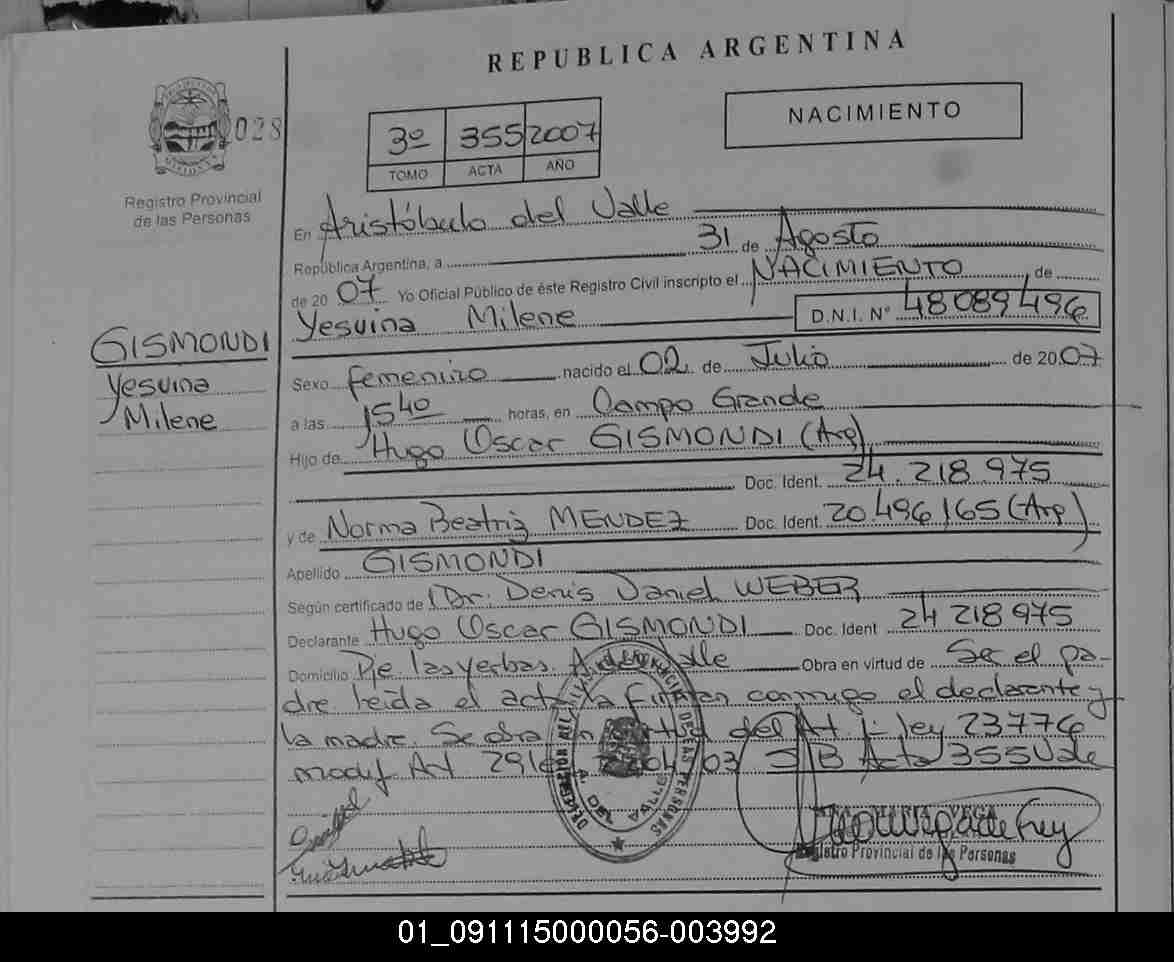 REPUBLICA ARGENTINA
028
Registro Provincial
de las Personas
3º 355 2007
TOMO ACTA AÑO
NACIMIENTO
En Aristóbulo del Valle
República Argentina, a 31 de Agosto
de 2007 Yo Oficial Público de éste Registro Civil inscripto el NACIMIENTO de
Yesuina Milene D.N.I. Nº 48089496
GISMONDI
Yesuina
Milene
Sexo femenino nacido el 02 de Julio de 2007
a las 15 40 horas, en Campo Grande
Hijo de Hugo Oscar GISMONDI (Arg)
Doc. Ident. 24.218.975
y de Norma Beatriz MENDEZ Doc. Ident. 20.496165 (Arg)
Apellido GISMONDI
Según certificado de Dr. Denis Daniel WEBER
Declarante Hugo Oscar GISMONDI Doc. Ident 24218975
Domicilio Pje las yerbas. Valle Obra en virtud de Ser el pa-
dre leida el acta la firman conmigo el declarante y
la madre. Se obra en virtud del Art. ley 23776
modif Art 03 S/B Acta 355 Valle
DE LAS PERSONAS
A. DEL VALLE
Registro Provincial de las Personas
01_091115000056-003992